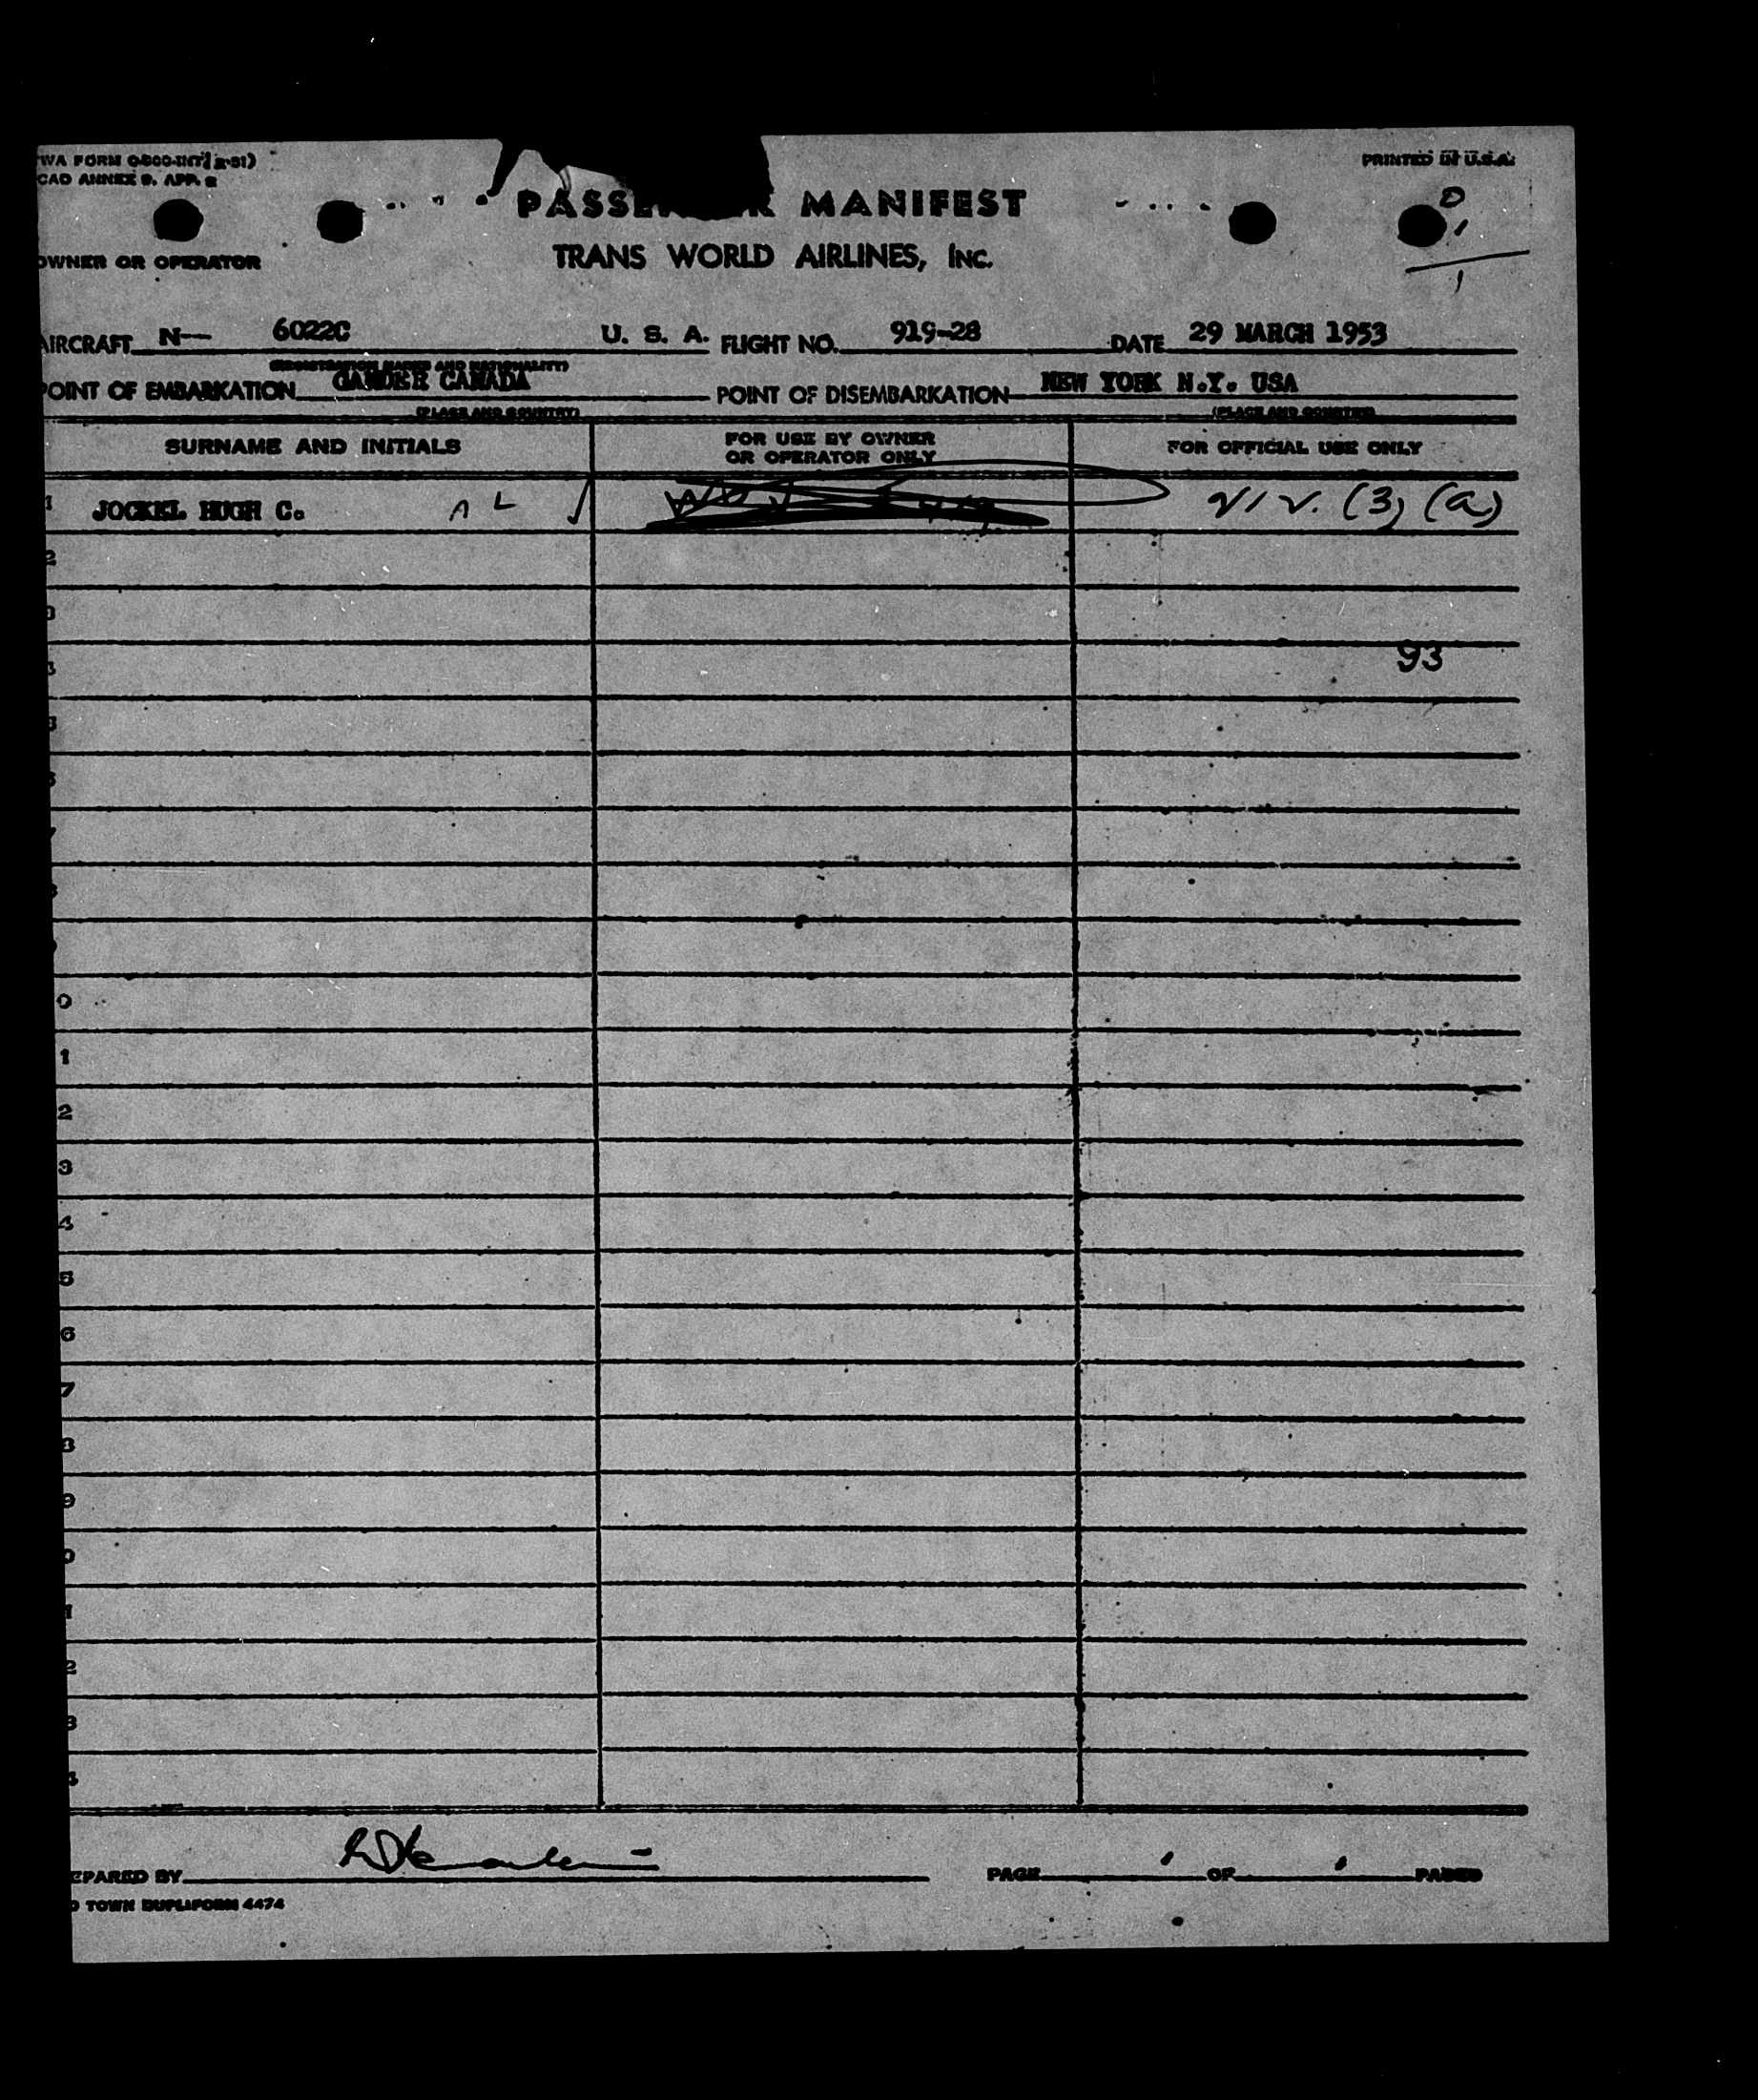 WA FORM O-800-INT(2-51)
CAO ANNEX 9. APP. 2
PRINTED IN U.S.A.
PASSE R MANIFEST
0
1
1
OWNER OR OPERATOR
TRANS WORLD AIRLINES, Inc.
AIRCRAFT N— 6022C U. S. A. FLIGHT NO. 919-28 DATE 29 MARCH 1953
(REGISTRATION MARKS AND NATIONALITY)
POINT OF EMBARKATION GANDER CANADA POINT OF DISEMBARKATION NEW YORK N.Y. USA
(PLACE AND COUNTRY) (PLACE AND COUNTRY)
SURNAME AND INITIALS FOR USE BY OWNER OR OPERATOR ONLY FOR OFFICIAL USE ONLY
1 JOCKEL HUGH C. (3) (a)
2
3
93
0
1
2
3
4
5
6
7
8
9
0
1
2
3
4
EPARED BY PAGE 1 OF 1 PAGES
D TOWN DUPLIFORM 4474